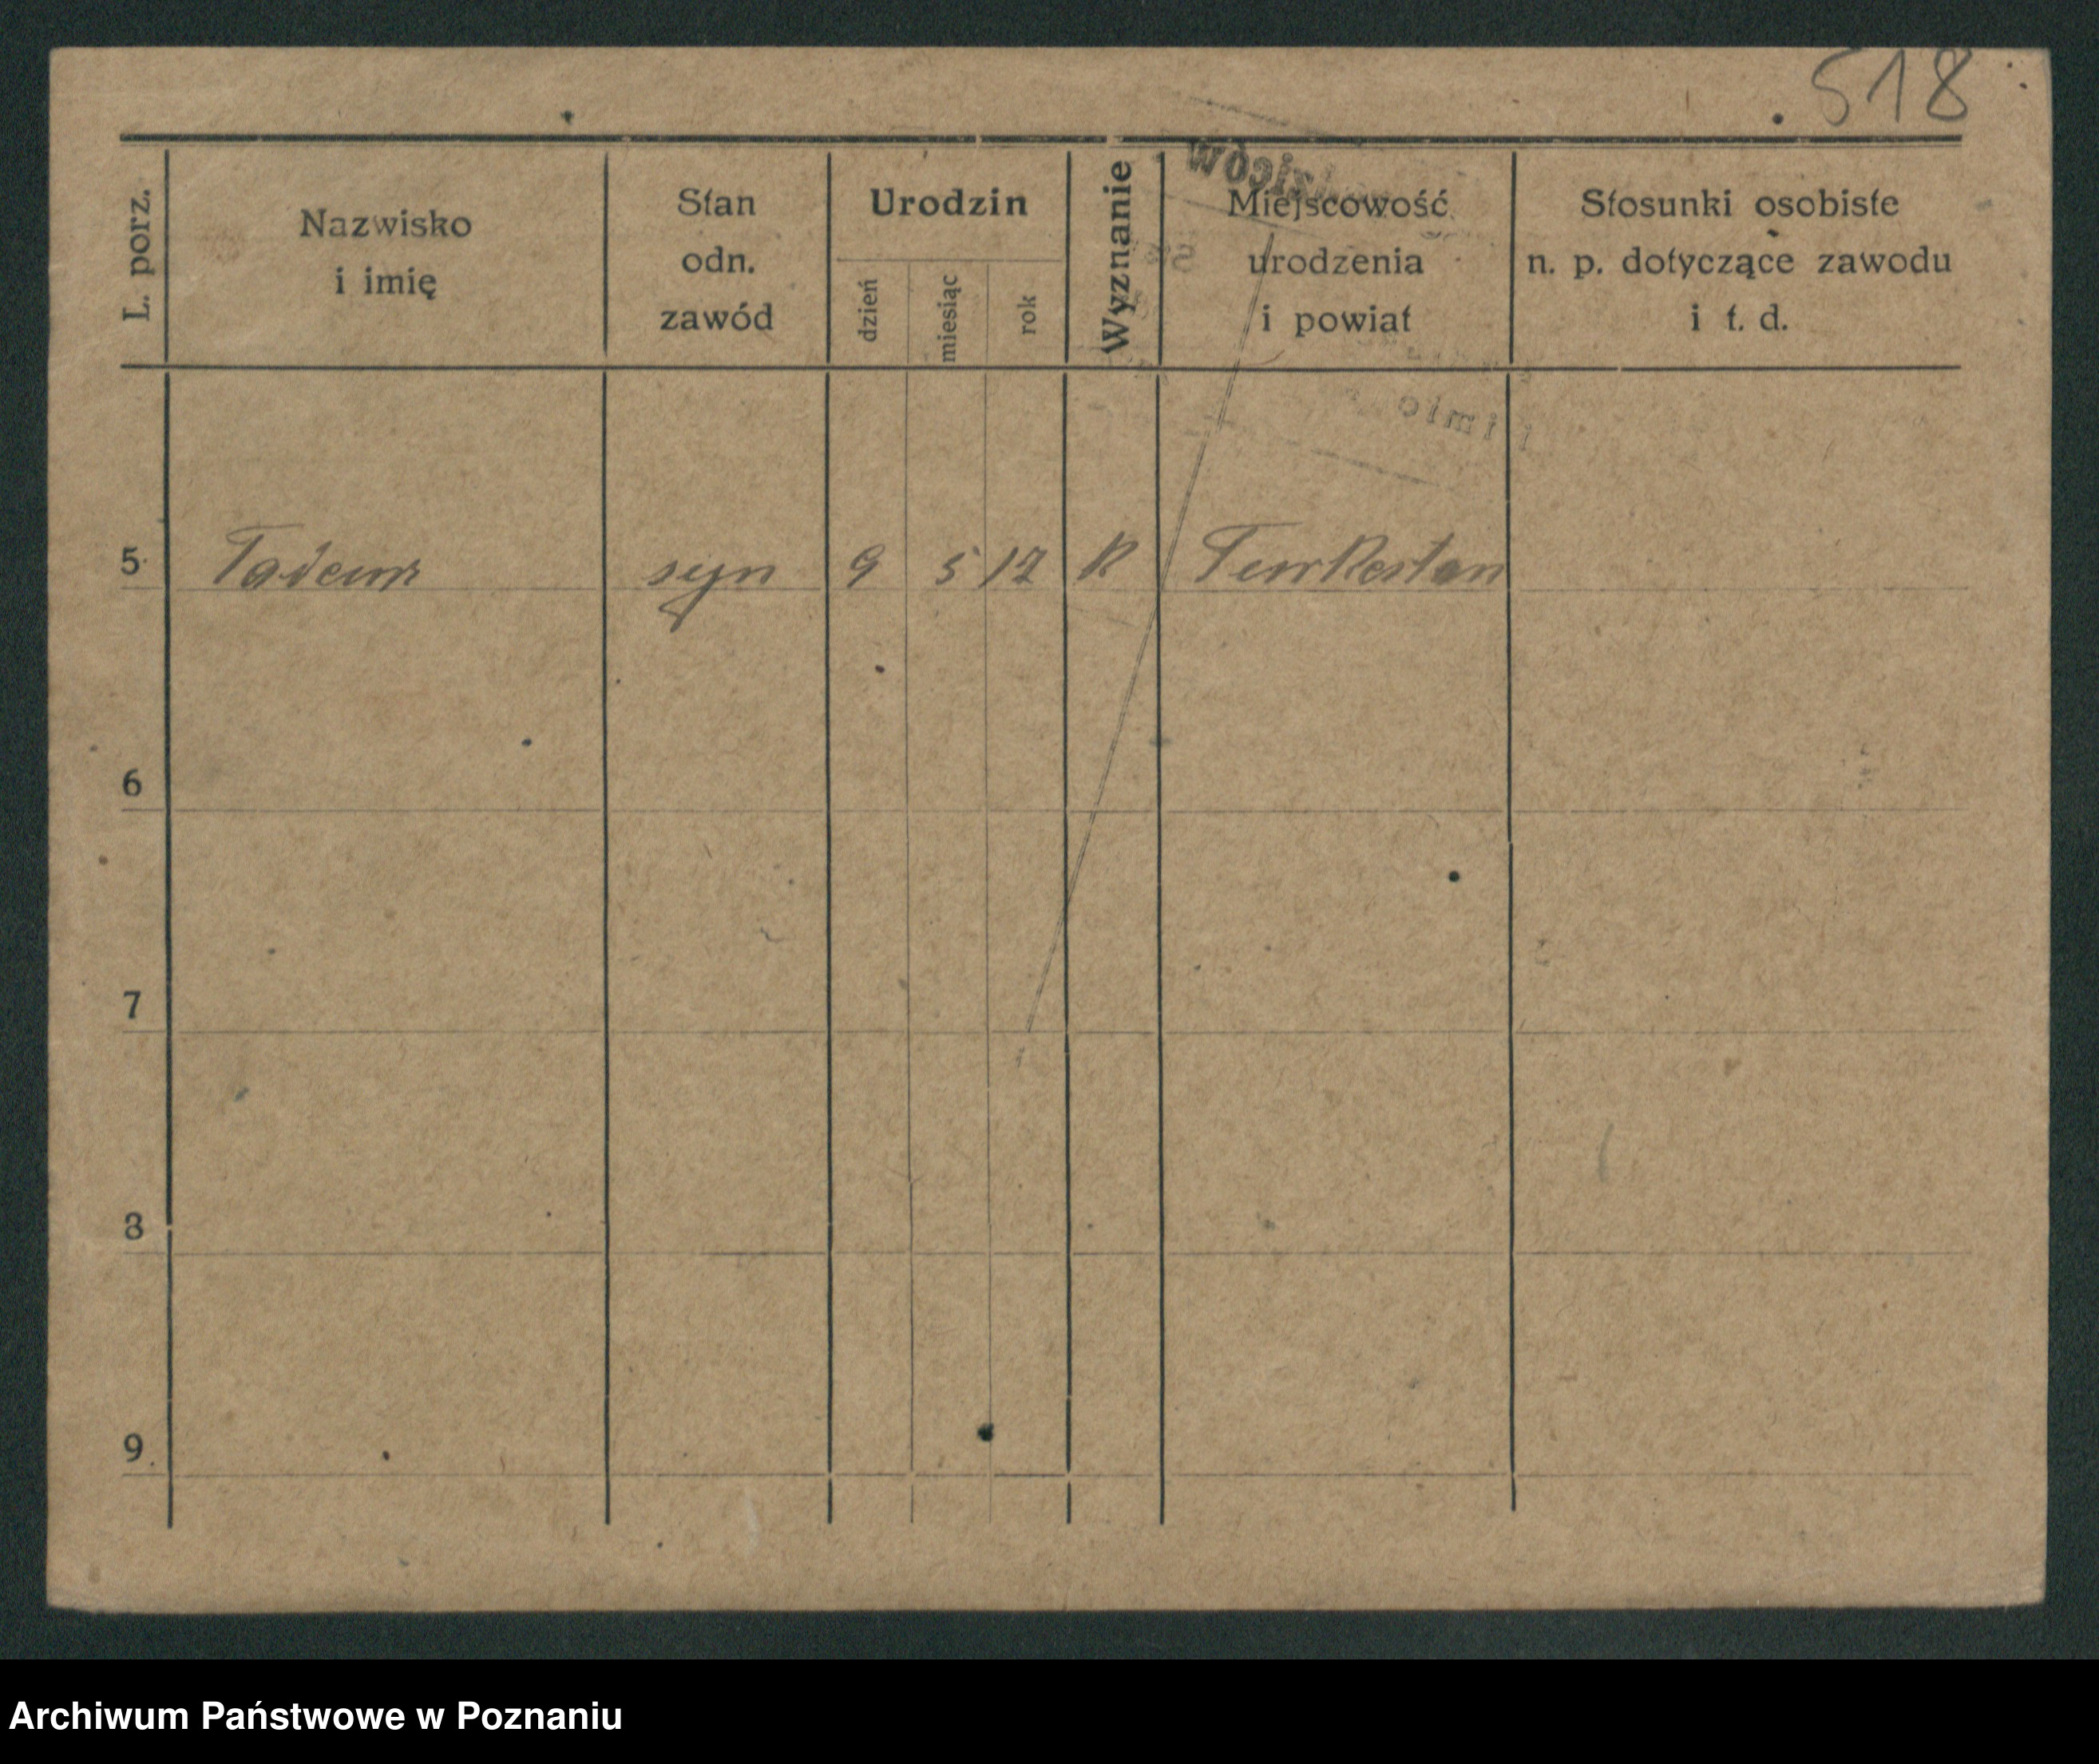 518
L. porz.
Nazwisko
i imię
Stan
odn.
zawód
Urodzin
dzień
miesiąc
rok
Wyznanie
Miejscowość
urodzenia
i powiat
Stosunki osobiste
n. p. dotyczące zawodu
i t. d.
5 Tadeusz syn 9 5 12 R Turkestan
6
7
8
9
Archiwum Państwowe w Poznaniu